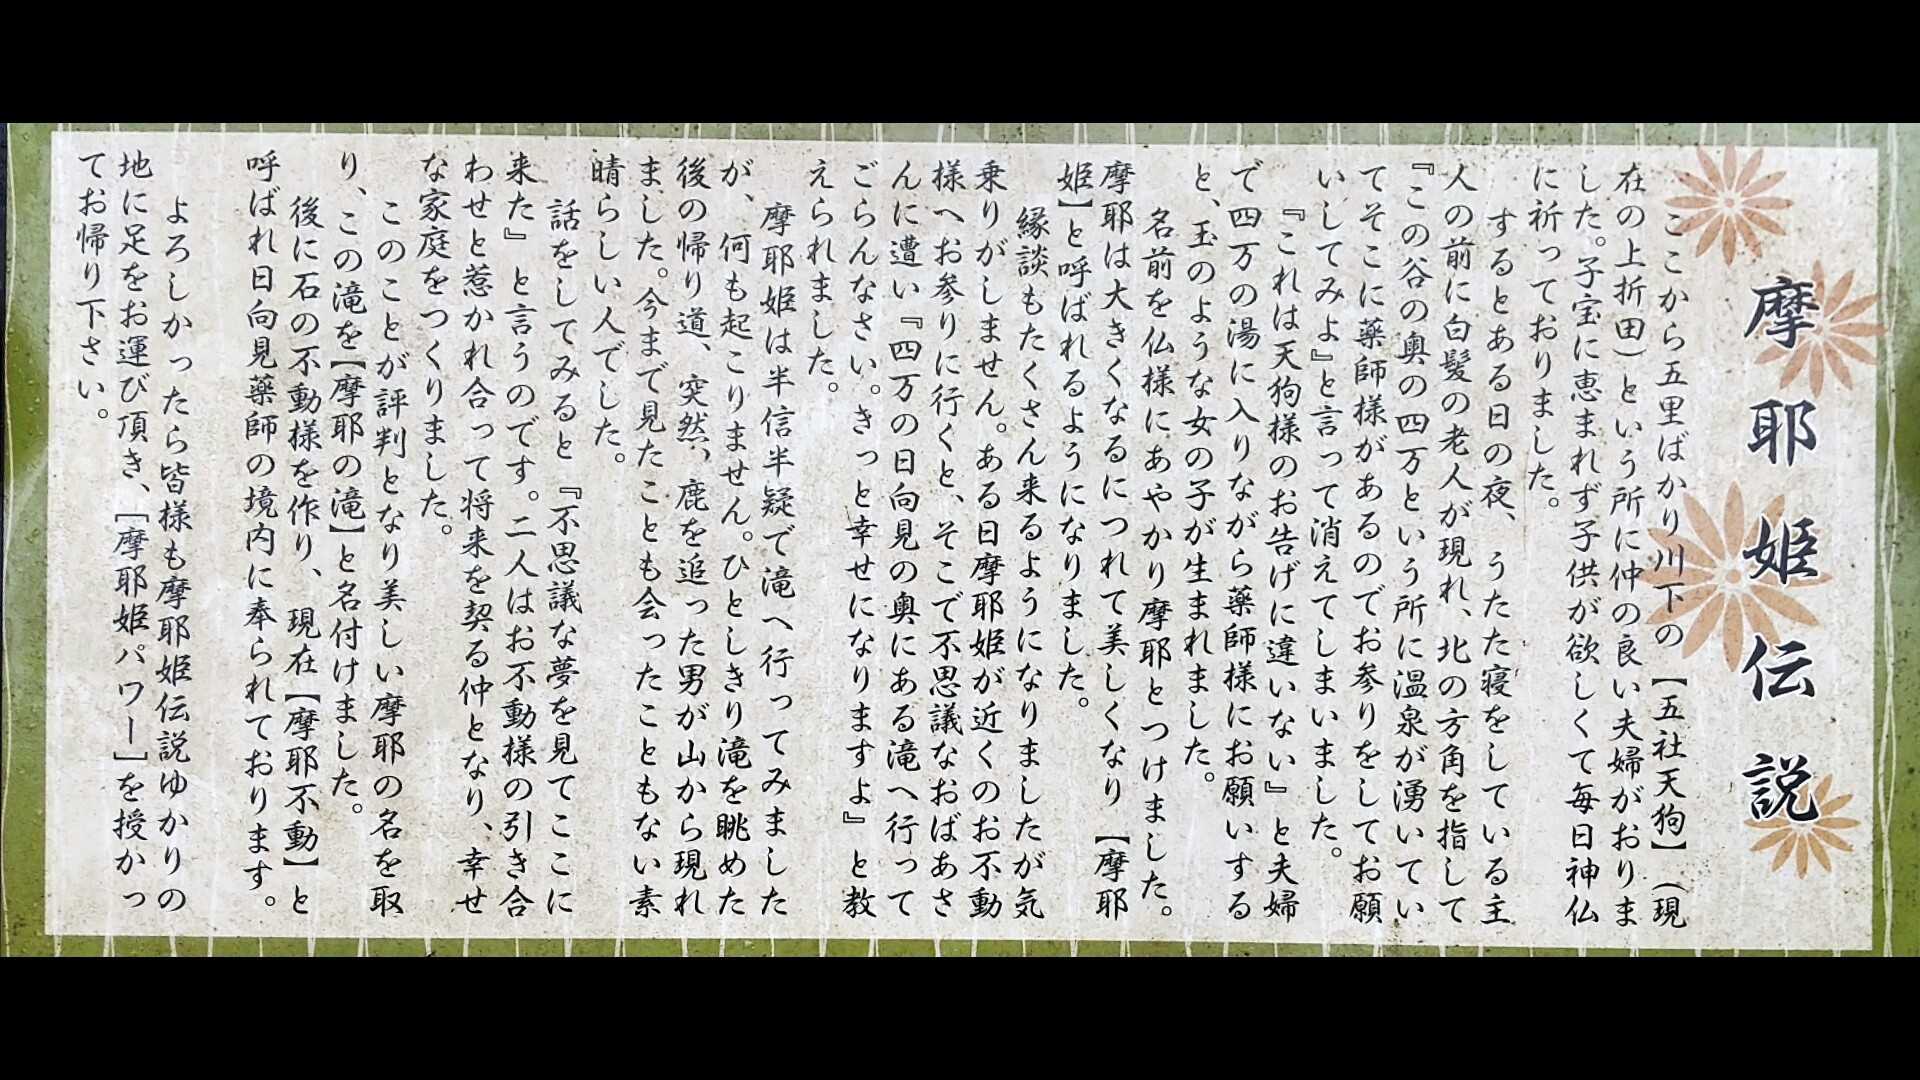 摩耶姫伝説
ここから五里ばかり川下の【五社天狗】（現
在の上折田）という所に仲の良い夫婦がおりま
した。子宝に恵まれず子供が欲しくて毎日神仏
に祈っておりました。
するとある日の夜、うたた寝をしている主
人の前に白髪の老人が現れ、北の方角を指して
『この谷の奥の四万という所に温泉が湧いてい
てそこに薬師様があるのでお参りをしてお願
いしてみよ』と言って消えてしまいました。
『これは天狗様のお告げに違いない』と夫婦
で四万の湯に入りながら薬師様にお願いする
と、玉のような女の子が生まれました。
名前を仏様にあやかり摩耶とつけました。
摩耶は大きくなるにつれて美しくなり【摩耶
姫】と呼ばれるようになりました。
縁談もたくさん来るようになりましたが気
乗りがしません。ある日摩耶姫が近くのお不動
様へお参りに行くと、そこで不思議なおばあさ
んに遭い『四万の日向見の奥にある滝へ行って
ごらんなさい。きっと幸せになりますよ』と教
えられました。
摩耶姫は半信半疑で滝へ行ってみました
が、何も起こりません。ひとしきり滝を眺めた
後の帰り道、突然、鹿を追った男が山から現れ
ました。今まで見たことも会ったこともない素
晴らしい人でした。
話をしてみると『不思議な夢を見てここに
来た』と言うのです。二人はお不動様の引き合
わせと惹かれ合って将来を契る仲となり、幸せ
な家庭をつくりました。
このことが評判となり美しい摩耶の名を取
り、この滝を【摩耶の滝】と名付けました。
後に石の不動様を作り、現在【摩耶不動】と
呼ばれ日向見薬師の境内に奉られております。
よろしかったら皆様も摩耶姫伝説ゆかりの
地に足をお運び頂き、［摩耶姫パワー］を授かっ
てお帰り下さい。